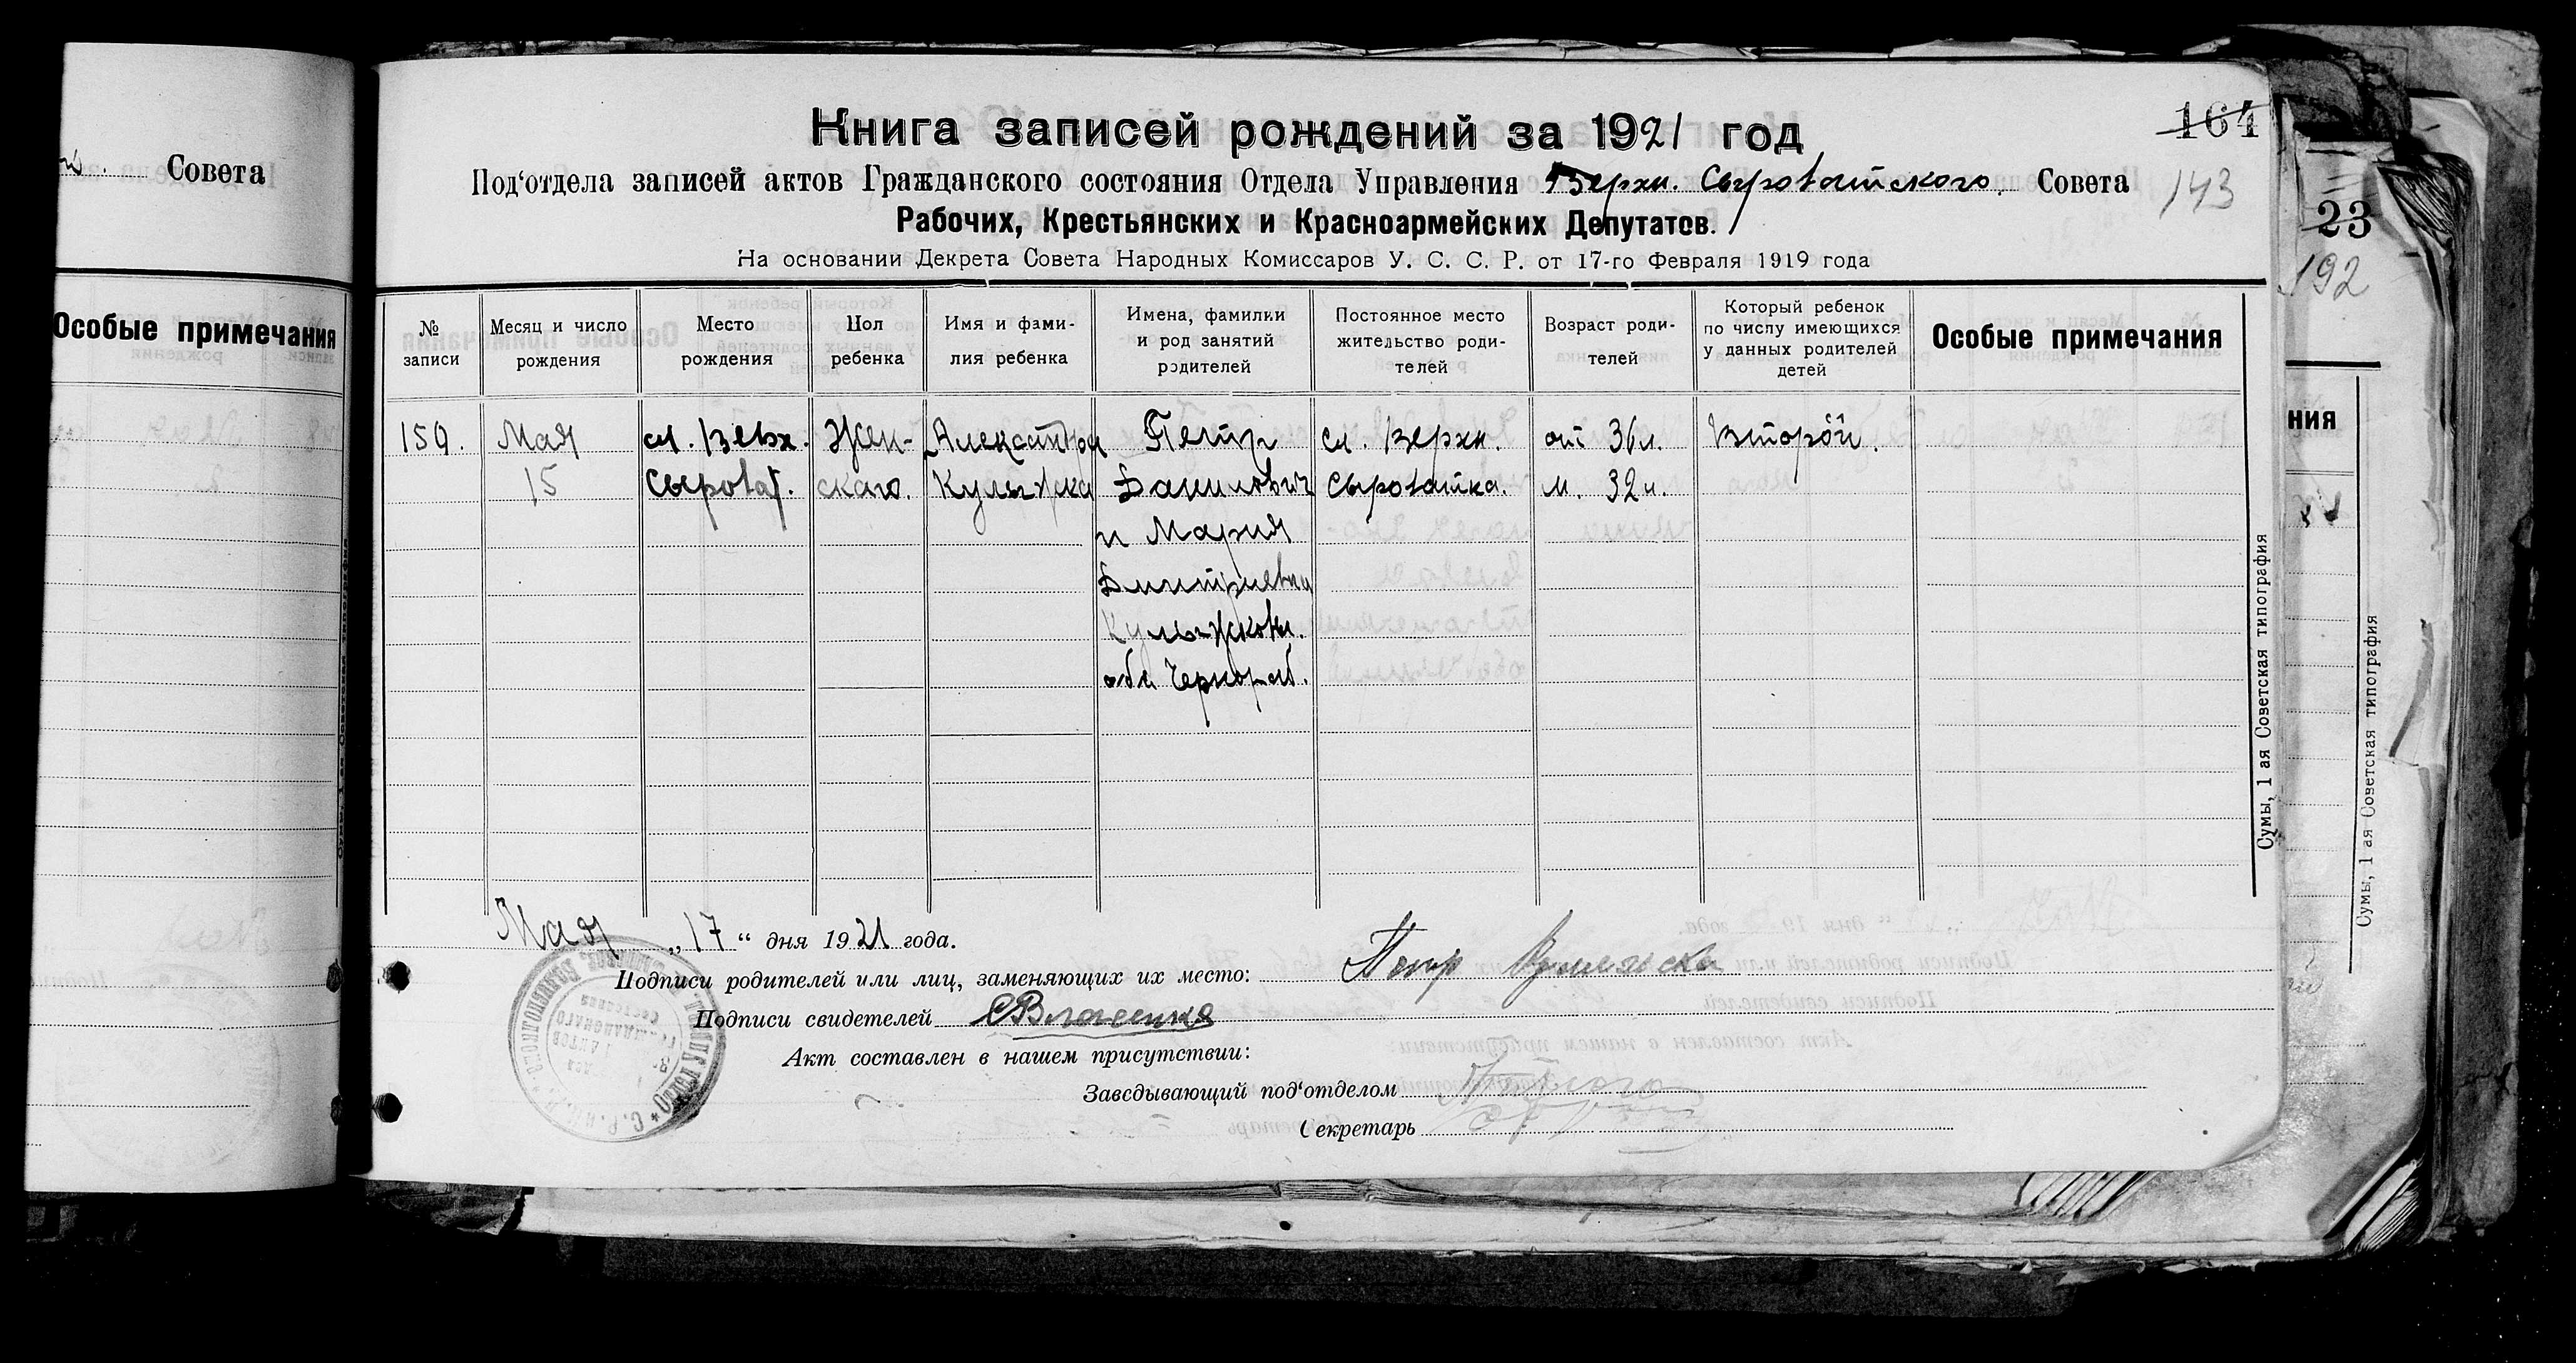 Совета
Особые примечания
Книга записей рождений за 1921 год
164
Под‘отдела записей актов Гражданского состояния Отдела Управления Верхн. Сыроватского Совета
143
Рабочих, Крестьянских и Красноармейских Депутатов.
На основании Декрета Совета Народных Комиссаров У. С. С. Р. от 17-го Февраля 1919 года
№ записи
Месяц и число рождения
Место рождения
Пол ребенка
Имя и фами-
лия ребенка
Имена, фамилии
и род занятий
родителей
Постоянное место
жительство роди-
телей
Возраст роди-
телей
Который ребенок
по числу имеющихся
у данных родителей
детей
Особые примечания
159.
Мая
15
сл. Верх.
Сыроват.
Жен-
скаго.
Александра
Петр
Данилович
и Мария
Дмитриевна
оба Чернораб.
сл. Верхн.
Сыроватка.
от 36 л.
м. 32 л.
Второй.
Сумы, 1 ая Советская типография
Мая „17“ дня 1921 года.
Подписи родителей или лиц, заменяющих их место: Петр
Подписи свидетелей
Акт составлен в нашем присутствии:
Заведывающий под‘отделом
Секретарь
23
192
ния
Сумы, 1 ая Советская типография